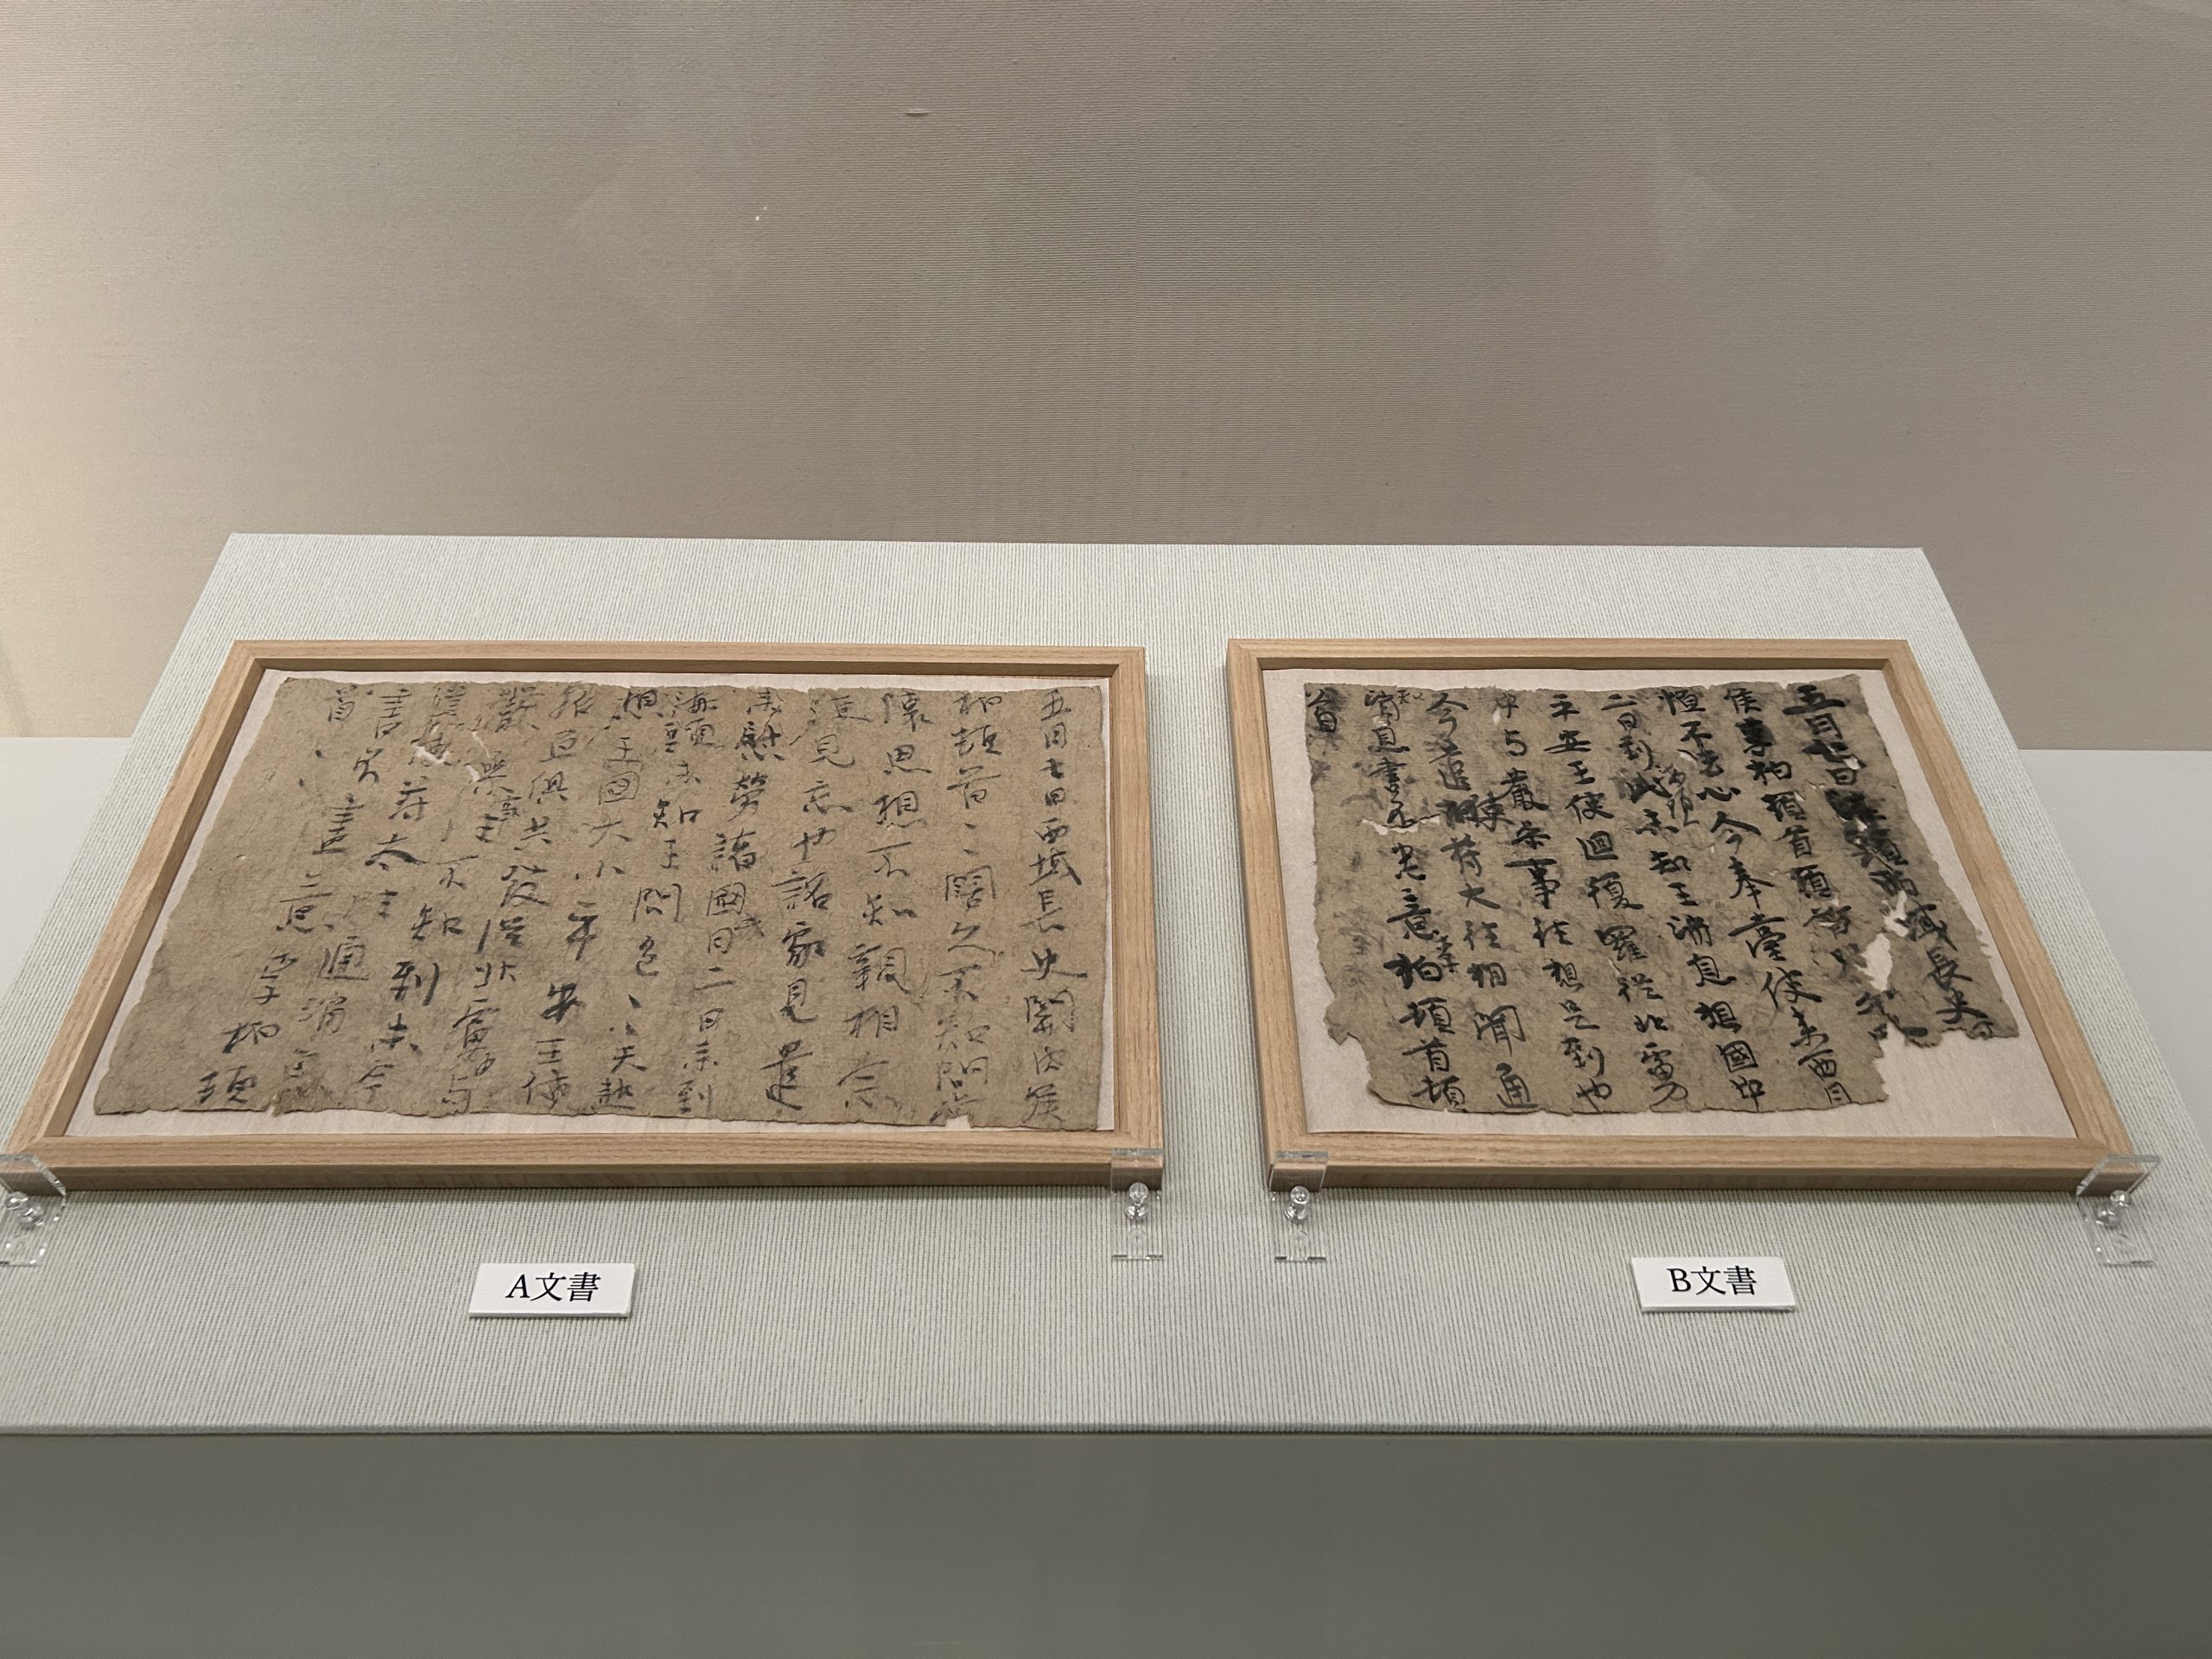 五月七日西域長史關內侯
柏頓首、、闊久不知問常
懷思想不知親相念
便見忘也詔家見遣
來慰勞諸國月二日來到
海頭未知王問邑、、天熱
想王國大小平安王使
招亘俱共發從北虜与
嚴參事不知到未今
遣苻太往通消息
書不盡意李柏頓
首、、
五月七日西域長史
侯李柏頓首頓首
恒不去心今奉臺使來西月
二日到此未知王消息想國中
平安王使迴復羅從北虜
中与嚴參事往想是到也
今遣使苻大往相聞通
知消息書不悉意李柏頓首頓
首
A文書
B文書